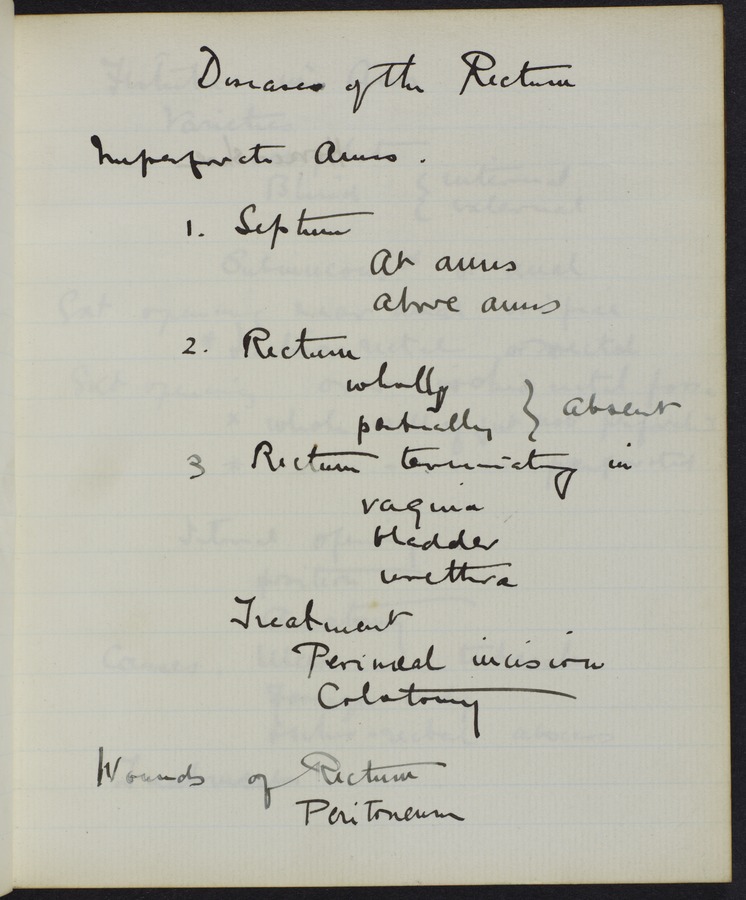 Diseases of the Rectum
Imperforate Anus.
1. Septum
At anus
above anus
2. Rectum
wholly
partially } absent
3 Rectum terminating in
vagina
bladder
urethra
Treatment
Perineal incision
Colotomy
Wounds of Rectum
Peritoneum